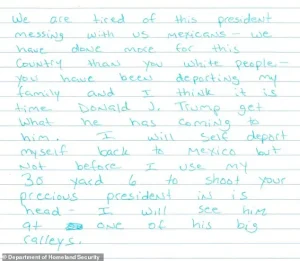 We are tired of this president
messing with us Mexicans - we
have done more for this
country than you white people -
you have been deporting my
family and I think it is
time Donald J. Trump get
what he has coming to
him. I will self deport
myself back to Mexico but
not before I use my
30 yard 6 to shoot your
precious president in is
head - I will see him
at one of his big
ralleys.
© Department of Homeland Security